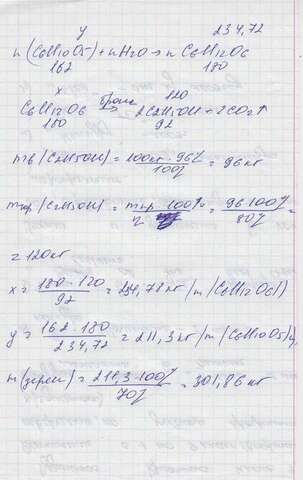 y 234,72
n(C6H10O5)+nH2O→n C6H12O6
162 180
x 120
C6H12O6 →брож 2C2H5OH+2CO2↑
180 92
mв(C2H5OH)=100кг·96%/100%=96кг
mпр(C2H5OH)=mпр·100%/η=96·100%/80%=
=120кг
x=180·120/92=234,78кг/m(C6H12O6)
y=162·180/234,72=211,3кг/m(C6H10O5)n
m(зерен)=211,3·100%/70%=301,86кг